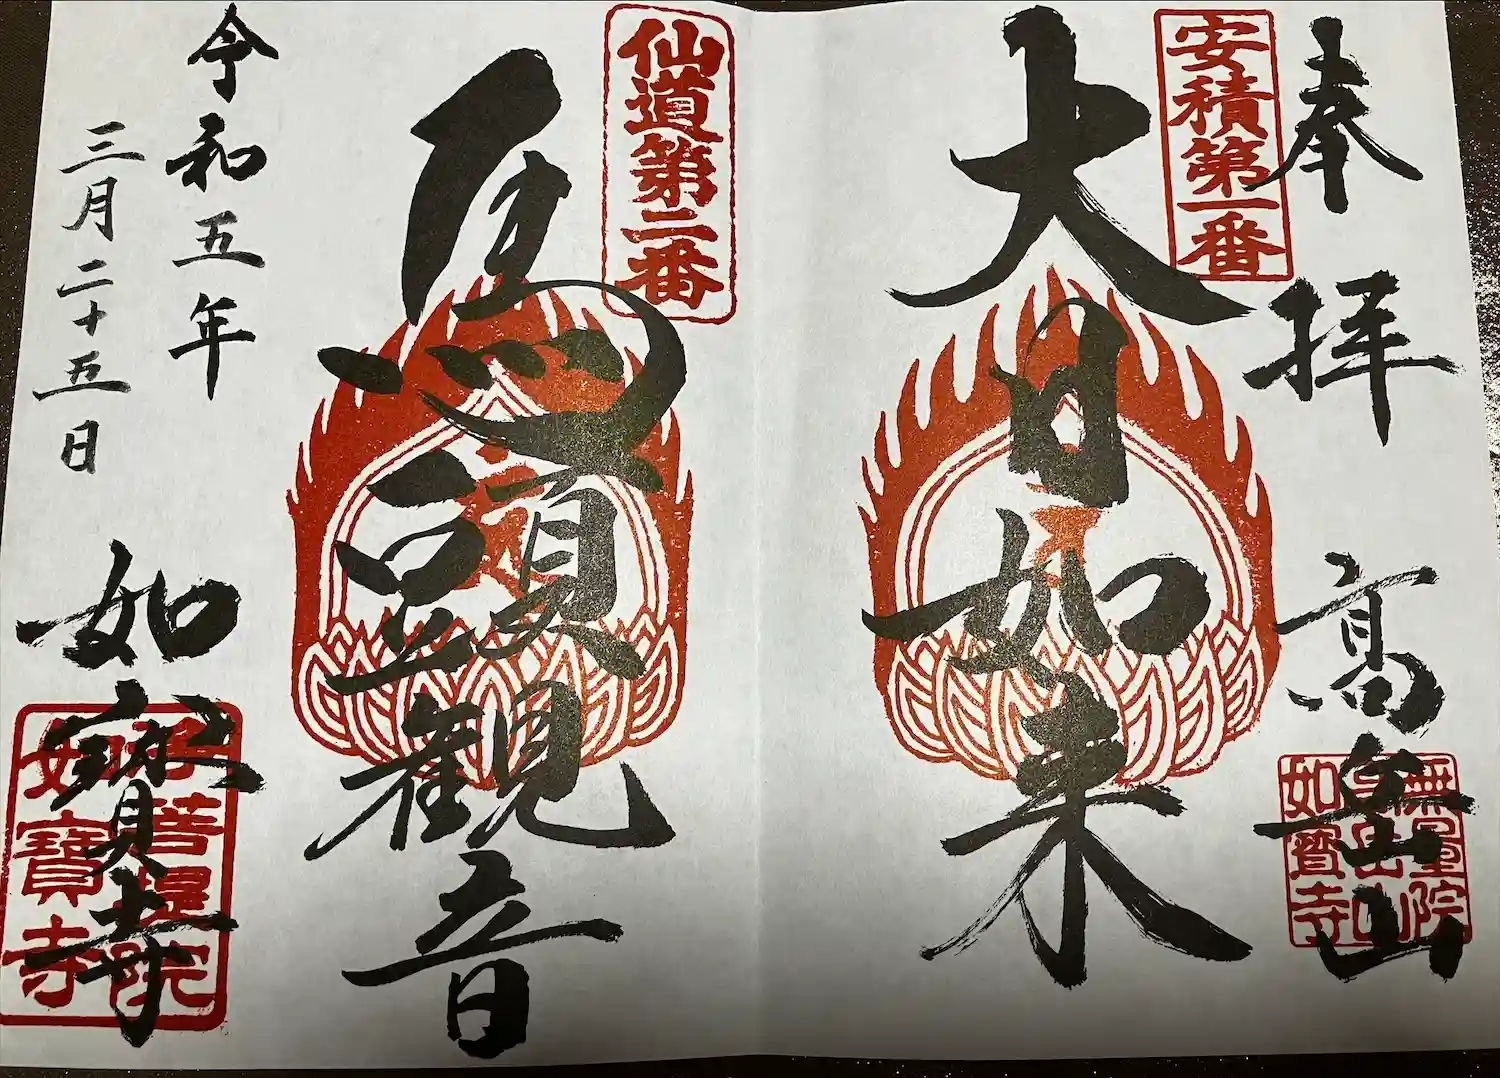 奉拝
高岳山
安積第一番
大日如来
無量院
如寶寺
仙道第二番
馬頭観音
令和五年
三月二十五日
如寳寺
菩提院
如寶寺